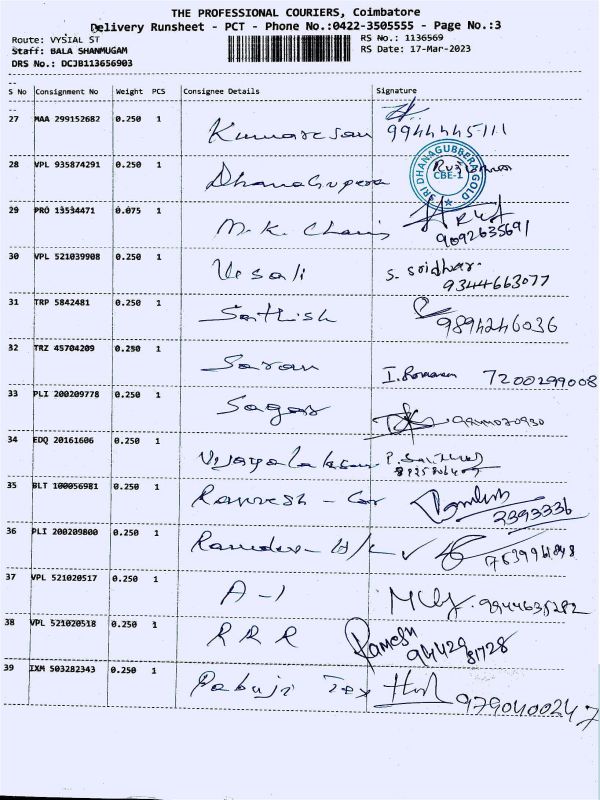 THE PROFESSIONAL COURIERS, Coimbatore
Delivery Runsheet - PCT - Phone No.:0422-3505555 - Page No.:3
Route: VYSIAL ST RS No.: 1136569
Staff: BALA SHANMUGAM RS Date: 17-Mar-2023
DRS No.: DCJB113656903
S No Consignment No Weight PCS Consignee Details Signature
27 MAA 299152682 0.250 1 Kumaresan 9944445111
28 VPL 935874291 0.250 1 Dhanagupera SRI DHANAGUBBERA GOLD CBE-1
29 PRO 13534471 0.075 1 M.K. Chains 9092635691
30 VPL 521039908 0.250 1 Vesali S. Sridhar. 9344663077
31 TRP 5842481 0.250 1 Sathish 9894246036
32 TRZ 45704209 0.250 1 Saran 7200299008
33 PLI 200209778 0.250 1 Sagar
34 EDQ 20161606 0.250 1
35 BLT 100056981 0.250 1 3393336
36 PLI 200209800 0.250 1
37 VPL 521020517 0.250 1 A-1 9944635282
38 VPL 521020518 0.250 1 R R R Ramesh 9442981728
39 IXM 503282343 0.250 1 Pabuji Tex 9790400247